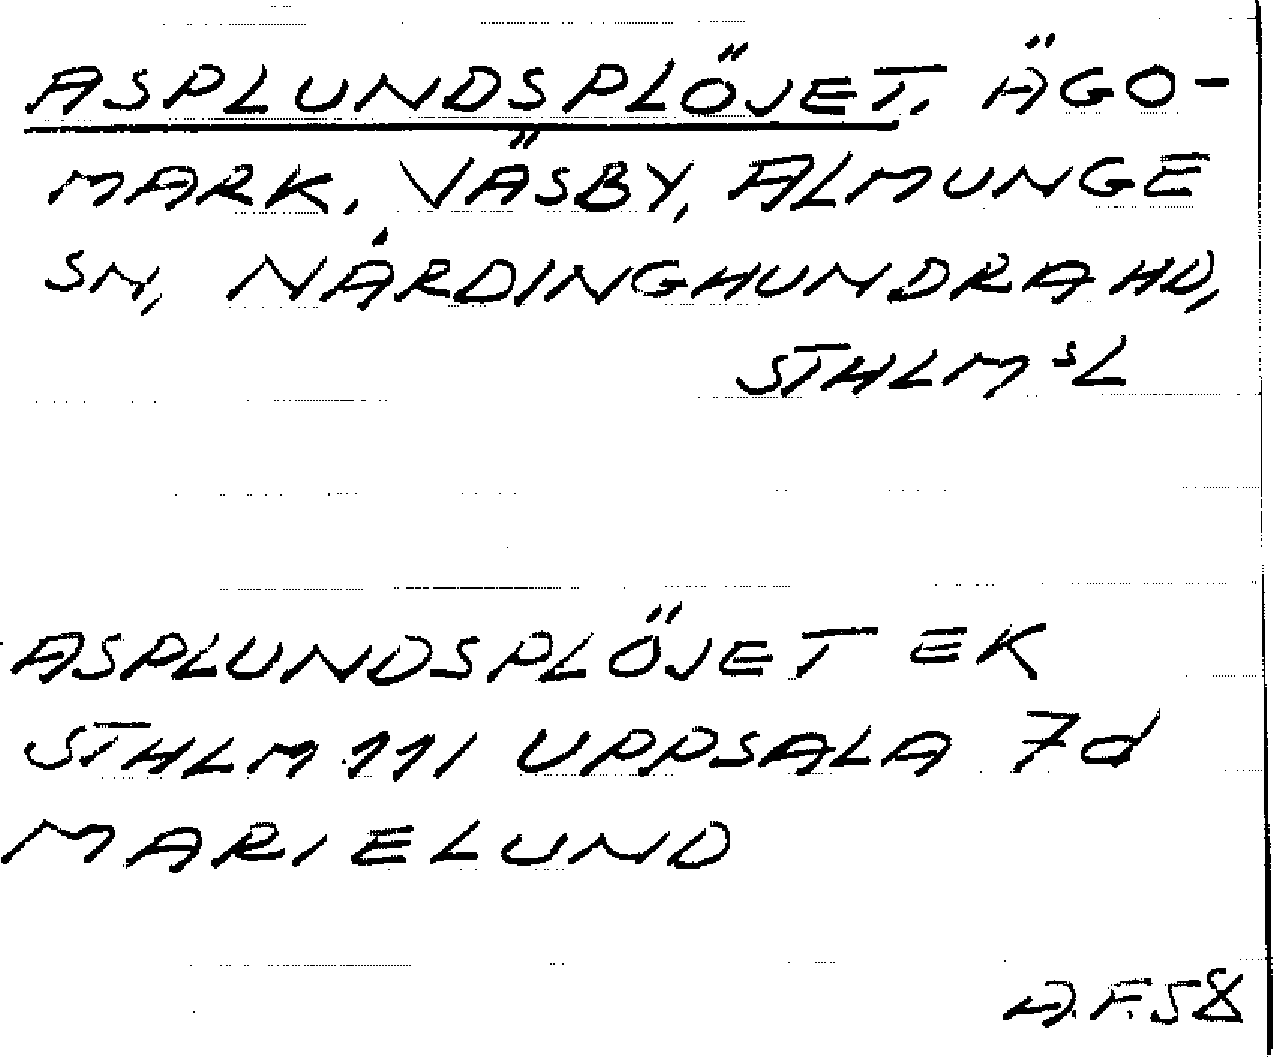 ASPLUNDSPLÖJET. ÄGO-
MARK. VÄSBY, ALMUNGE
SN, NÄRDINGHUNDRA HD,
STHLMˢL
ASPLUNDSPLÖJET EK
STHLM 111 UPPSALA 7d
MARIELUND
A.F.58